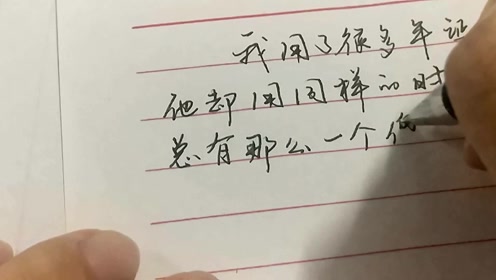 我用了很多年证
他却用同样的时
总有那么一个